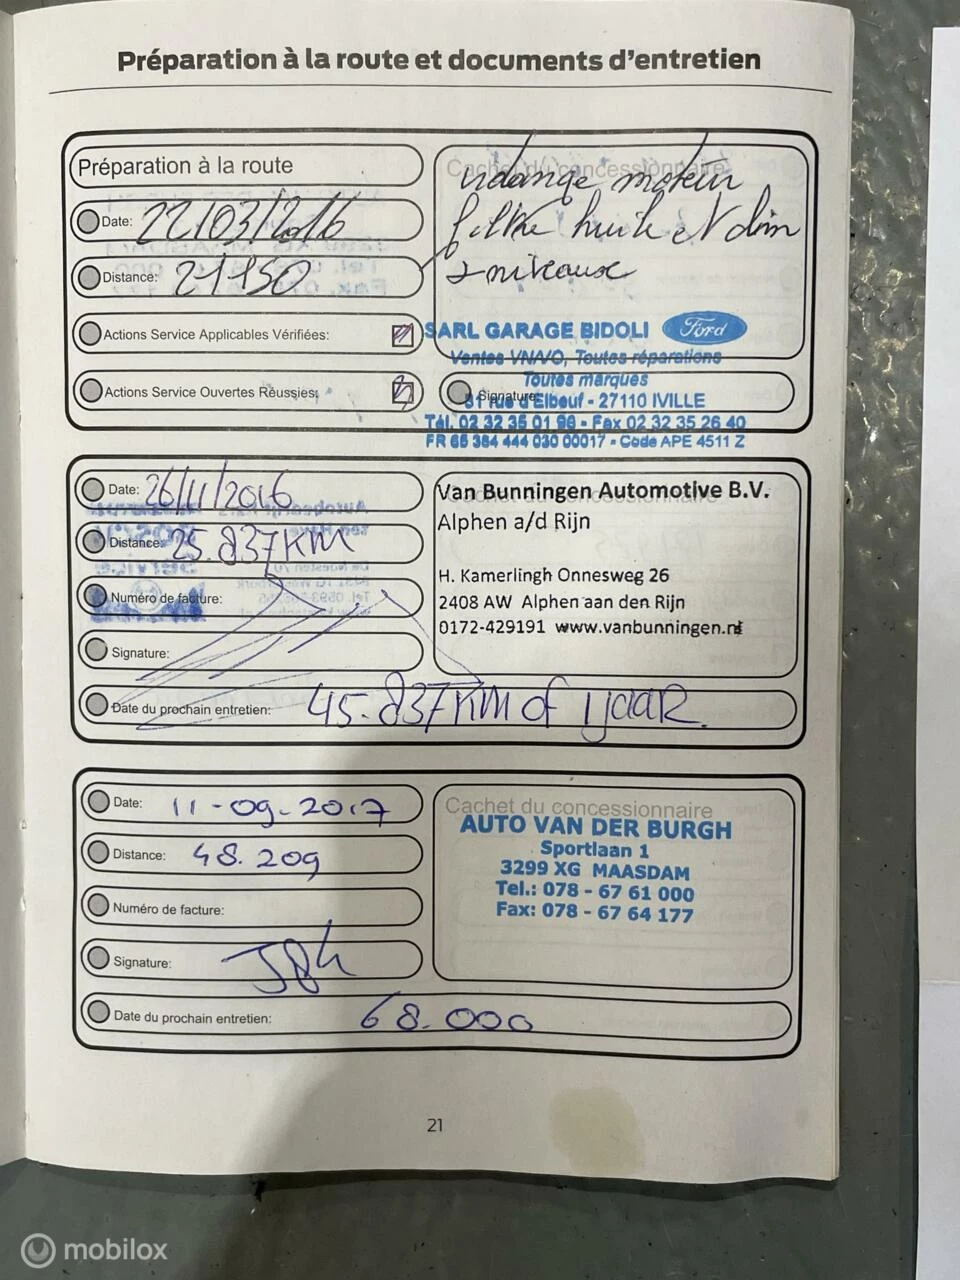 Préparation à la route et documents d'entretien
Préparation à la route
Date: 22/03/2016
Distance: 21150
Actions Service Applicables Vérifiées:
Actions Service Ouvertes Réussies:
Cachet du concessionnaire
vidange moteur
filtre huile et
+ niveaux
SARL GARAGE BIDOLI Ford
Ventes VN/VO, Toutes réparations
Toutes marques
Signature:
31 rue d'Elbeuf - 27110 IVILLE
Tél. 02 32 35 01 98 - Fax 02 32 35 26 40
FR 65 384 444 030 00017 - Code APE 4511 Z
Date: 26/11/2016
Distance: 25.837KM
Numéro de facture:
Signature:
Date du prochain entretien: 45.837KM of 1jaaR.
Cachet du concessionnaire
Van Bunningen Automotive B.V.
Alphen a/d Rijn
H. Kamerlingh Onnesweg 26
2408 AW Alphen aan den Rijn
0172-429191 www.vanbunningen.nl
Date: 11-09-2017
Distance: 48.209
Numéro de facture:
Signature:
Date du prochain entretien: 68.000
Cachet du concessionnaire
AUTO VAN DER BURGH
Sportlaan 1
3299 XG MAASDAM
Tel.: 078 - 67 61 000
Fax: 078 - 67 64 177
21
mobilox